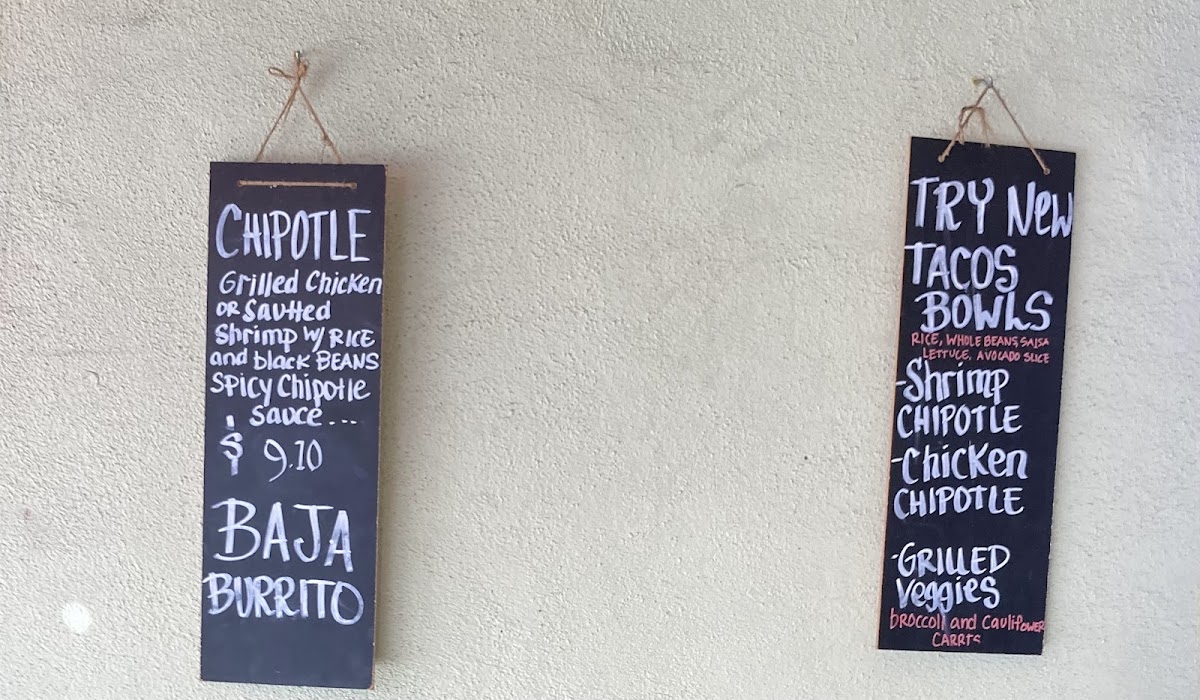 CHIPOTLE
Grilled Chicken
OR Sautted
Shrimp W/ RICE
and black BEANS
SPICY Chipotle
Sauce...
$ 9.10
BAJA
BURRITO
TRY New
TACOS
BOWLS
RICE, WHOLE BEANS, SALSA
LETTUCE, AVOCADO SLICE
-Shrimp
CHIPOTLE
-Chicken
CHIPOTLE
-GRILLED
Veggies
broccoli and Cauliflower